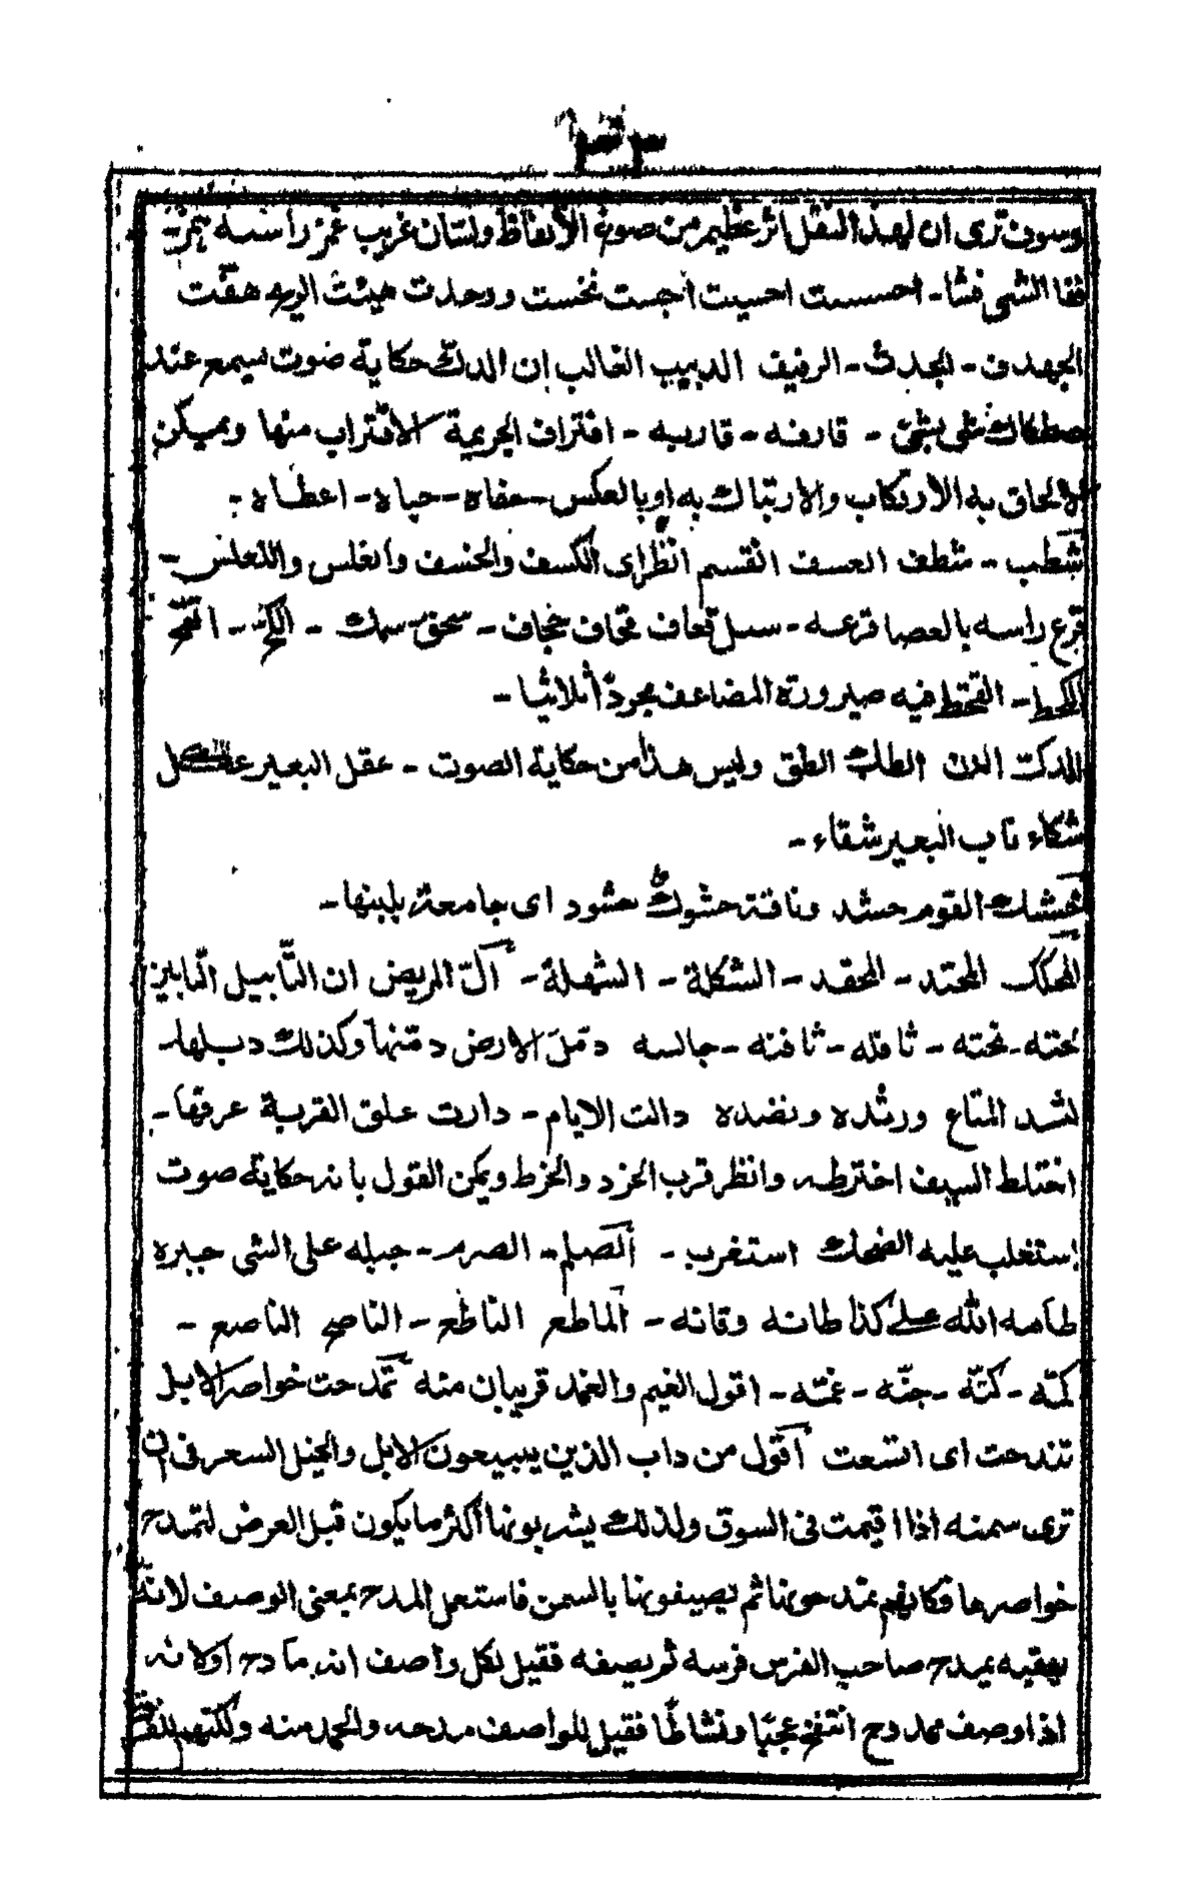 وسوف ترى ان لهذا النقل اثر عظيم من صوغ الالفاظ ولسان غريب غمز راسه تمرّ
ففا الشئ فشا - احسست احسيت احبست نخست ووحدت هيئت الريح هفّت
الجهدف - الجدث - الرفيف الدبيب الغالب ان الدكّ حكاية صوت يسمع عند
صطكاك شئ بشئ - قارفه - قاربه - اقتراف الجريمة الاقتراب منها ويمكن
الالحاق به الارتكاب والارتباك به او بالعكس - حفاه - حباه - اعطاه :
شطب - شطف العسف القسم انظر اى الكسف والخسف والغلس واللعلس -
قرع راسه بالعصا قرعه - سيل قعاف قحاف جحاف - سحق سهك - الكخّ - القحّ
الكحط - القحط فيه صيرورة المضاعف مجردّا ثلاثيا -
الدكت الدن الطلب الطق وليس هذا من حكاية الصوت - عقل البعير عكل
شكاء ناب البعير شقاء -
حشك القوم حشد وناقة حشوك حشود اى جامعة بلبنها -
المحكك المحتد - المحقد - الشكلة - الشهلة - آلّ المريض ان التّأبيل التّأبين
نحته - نحته - ثافله - ثافنه - جالسه دمّل الارض دمّنها وكذلك دبلها -
لشد المتاع ورثده ونضده دالت الايام - دارت علق القربة عرقها -
اختلط السيف اخترطه وانظر قرب الخرد والخرط ويمكن القول بانه حكاية صوت
استغلب عليه الضحك استغرب - الصلم - الصرم - جبله على الشئ جبره
طامه الله على كذا طانه وقانه - الماطع الناطع - الناصح الناصع -
كمّه - كنّه - جنّه - غمّه - اقول الغيم والغمد قريبان منه تمدحت خواصر الابل
تندحت اى اتسعت اقول من داب الذين يبيعون الابل والخيل السعر فى ان
ترى سمنه اذا اقيمت فى السوق ولذلك يشربونها اكثر ما يكون قبل العرض لتمدح
خواصرها فكانهم يمدحونها ثم يصيفونها بالسمن فاستعمل المدح بمعنى الوصف لانه
يعقبه يمدح صاحب الفرس فرسه ثم يصفه فقيل لكل واصف انه مادح اولانه
اذا وصف ممدوح انتفخ عجبا ونشاطا فقيل للواصف مدحه والحمد منه ولكنه